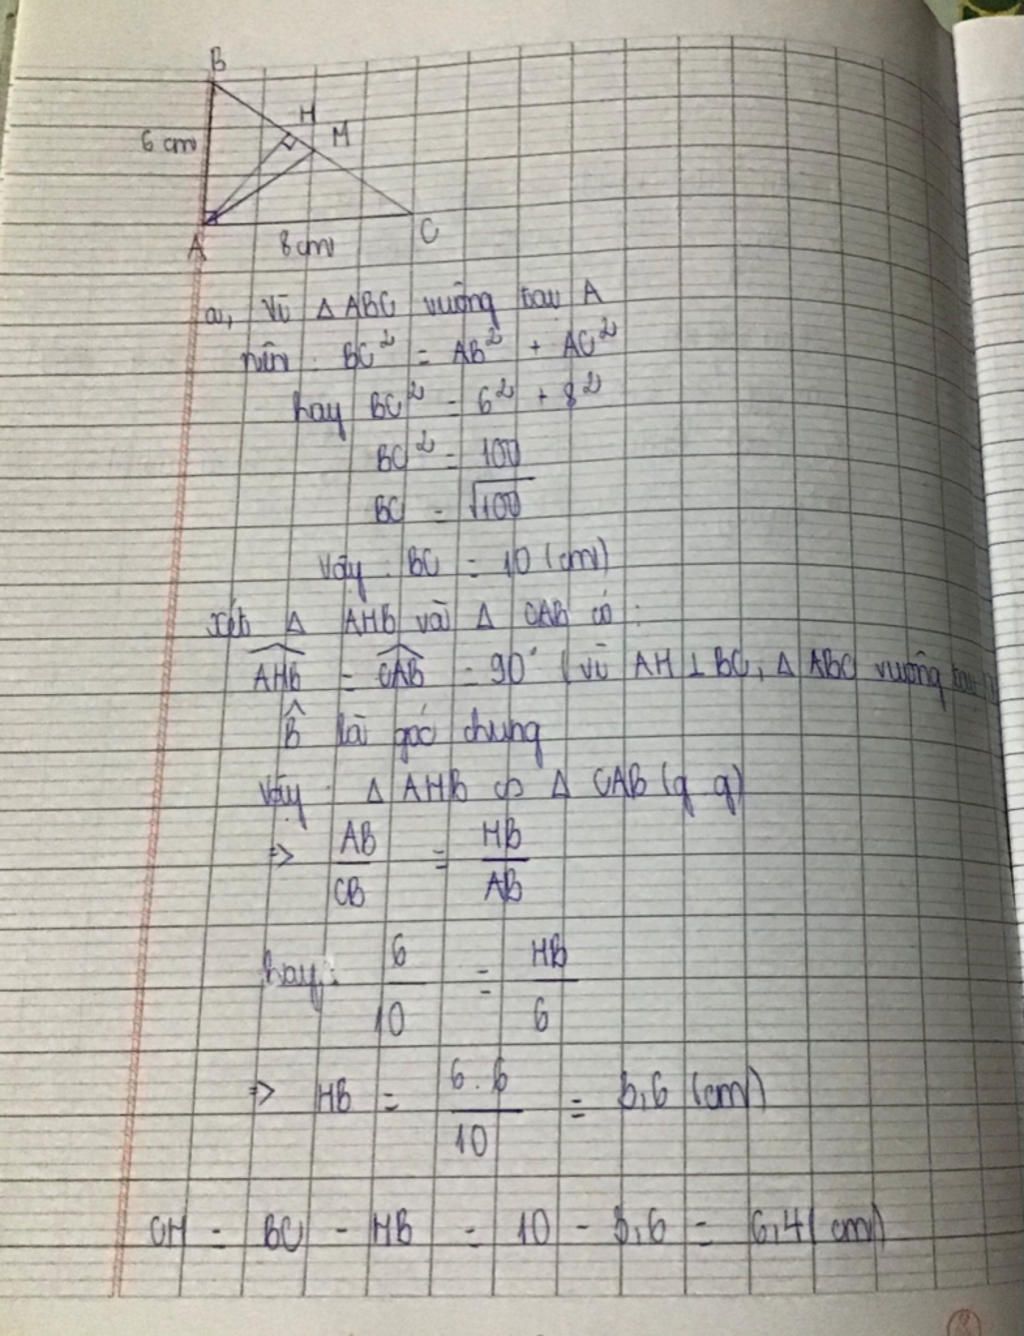 B
H
M
6 cm
A
8 cm
C
a, Vì Δ ABC vuông tại A
nên: BC² = AB² + AC²
hay BC² = 6² + 8²
BC² = 100
BC = √100
Vậy BC = 10 (cm)
xét Δ AHB và Δ CAB có:
AHB = CAB = 90° (vì AH ⊥ BC, Δ ABC vuông tại
B̂ là góc chung
Vậy Δ AHB ∽ Δ CAB (g g)
=> AB/CB = HB/AB
hay: 6/10 = HB/6
=> HB = 6.6/10 = 3,6 (cm)
CH = BC - HB = 10 - 3,6 = 6,4 (cm)